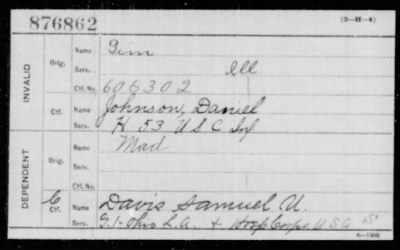 876862 (3-H-4)
INVALID
Orig. Name
Serv. Ill
Ctf. No. 606302
Ctf. Name Johnson, Daniel
Serv. H 53 U S C Inf
DEPENDENT
Orig. Name
Serv.
Ctf. No.
C Ctf. Name Davis Samuel U.
Serv. G. 1- Ohio L.A. + Hosp Corps, U.S.A.
6-7303